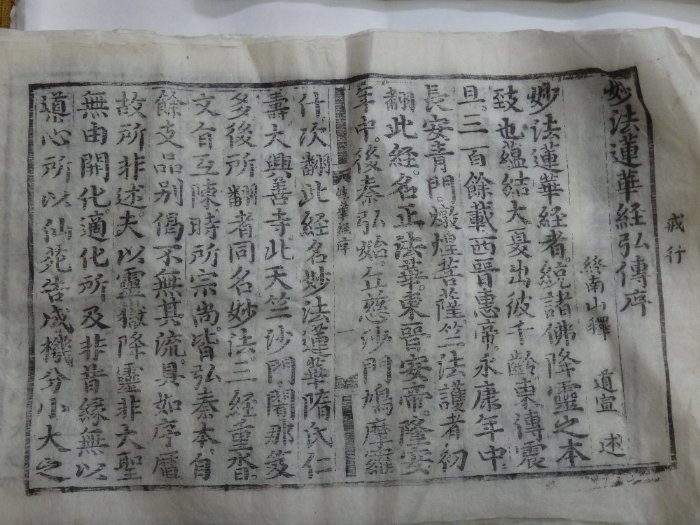 戒行
妙法蓮華經弘傳序
終南山釋 道宣 述
妙法蓮華經者。統諸佛降靈之本
致也。蘊結大夏出彼千齡。東傳震
旦。三百餘載。西晉惠帝永康年中。
長安青門。燉煌菩薩。竺法護者。初
翻此經。名正法華。東晉安帝。隆安
年中。後秦弘始。丘慈沙門。鳩摩羅
法華經序
什。次翻此經。名妙法蓮華。隋氏仁
壽。大興善寺。北天竺沙門。闍那笈
多。後所翻者。同名妙法。三經重沓。
文旨互陳。時所宗尚。皆弘秦本。自
餘支品別偈。不無其流。具如序曆。
故所非述。夫以靈嶽降靈。非大聖
無由開化。適化所及。非昔緣無以
導心。所以仙苑告成。機分小大之